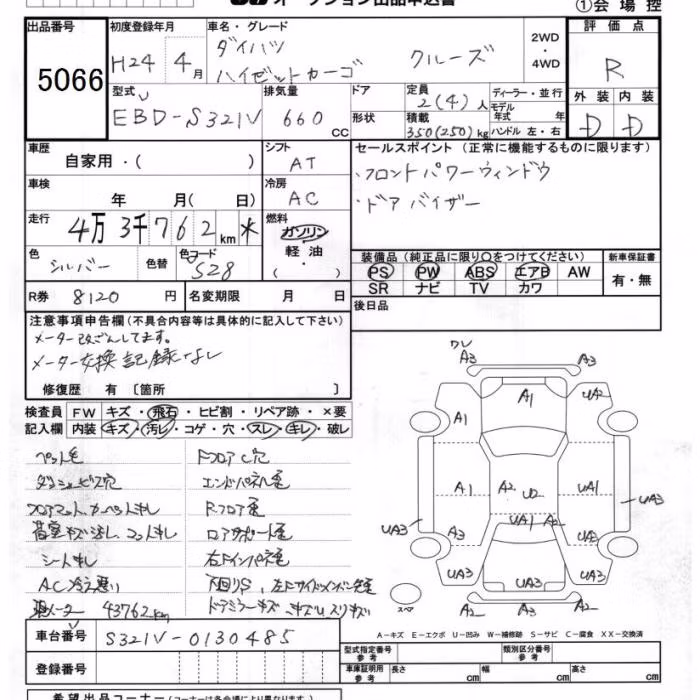 オークション出品申込書 ①会場控
出品番号 初度登録年月 車名・グレード 2WD ・ 4WD 評価点
5066 H24 4月 ダイハツ ハイゼットカーゴ クルーズ R
型式 排気量 ドア 定員 ディーラー・並行 外装 内装
EBD-S321V 660 cc 2(4)人 モデル年式 年式 D D
形状 積載 350(250)kg ハンドル 左・右
車歴 シフト セールスポイント(正常に機能するものに限ります)
自家用・( ) AT ・フロントパワーウィンドウ
車検 冷房 ・ドアバイザー
年 月( 日) AC
走行 燃料
4万3千762km ※ ガソリン
色 色替 色コード 軽油・ 装備品(純正品に限り○をつけてください) 新車保証書
シルバー S28 ( ) PS PW ABS エアB AW 有・無
SR ナビ TV カワ
R券 8120円 名変期限 月 日 後日品
注意事項申告欄(不具合内容等は具体的に記入して下さい)
メーター改ざんしてます。
メーター交換記録なし
修復歴 有 〔箇所 〕
検査員 FW キズ・飛石・ヒビ割・リペア跡・×要
記入欄 内装 キズ・汚レ・コゲ・穴・スレ・キレ・破レ
ペット毛 FフロアC穴
ダッシュビス穴 エンドパネル歪
フロアマット、カーペットキレ Rフロア歪
シートキレ 右Fインパネ歪
AC冷え悪い
メーター 43762km
ワレ
A3 A3
A1 UA2
A1
A1 A2 U2 UA1
UA1 A2 UA3
UA3 A3
UA3 UA3 UA3
A2 A3 A2
スペア
A-キズ E-エクボ U-凹み W-補修跡 S-サビ C-腐食 XX-交換済
車台番号 S321V-0130485
型式指定番号 参考 類別区分番号 参考
登録番号 車庫証明用 参考 長さ cm 幅 cm 高さ cm
希望出品コーナー(コーナーは各会場により異なります)